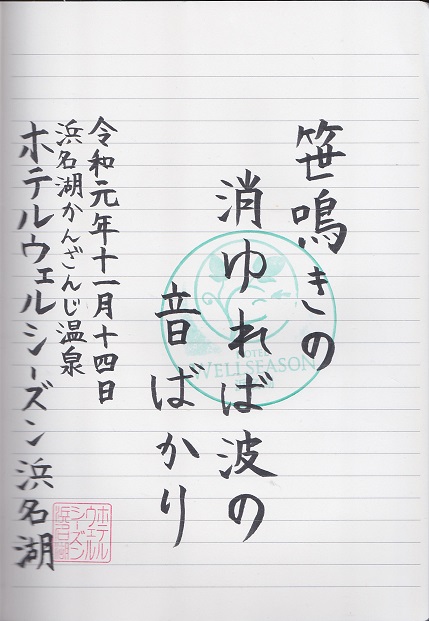 笹鳴きの
消ゆれば波の
音ばかり
令和元年十一月十四日
浜名湖かんざんじ温泉
ホテルウェルシーズン浜名湖
HOTEL
WELLSEASON
ホテル
ウェル
シーズン
浜名湖